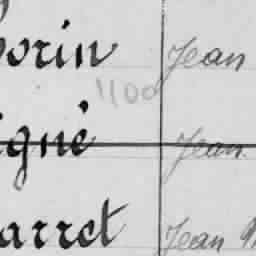 orin Jean
1100
igné Jean
arret Jean